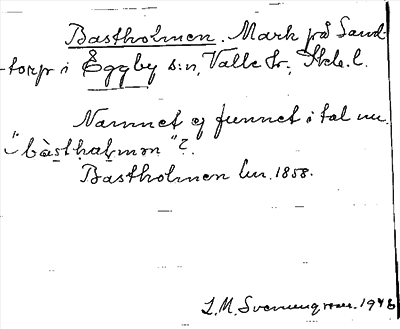 Bastholmen. Mark på Sand-
torp i Eggby s:n, Valle hd., Skb. l.
Namnet ej funnet i tal nu.
"bàsthaḷmən"?.
Bastholmen lm. 1858.
L. M. Svenungsson. 1946